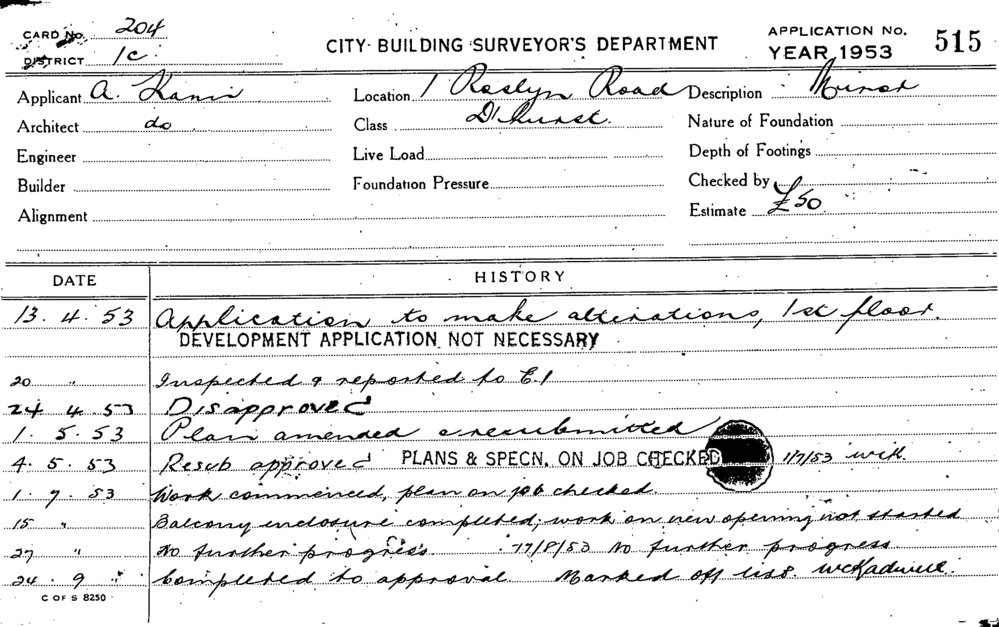 CARD No. 204
DISTRICT 1c
CITY BUILDING SURVEYOR'S DEPARTMENT
APPLICATION No. 515
YEAR 1953
Applicant A. Location 1 Roslyn Road Description Minor
Architect do Class D'hurst. Nature of Foundation
Engineer Live Load Depth of Footings
Builder Foundation Pressure Checked by
Alignment Estimate £50
DATE HISTORY
13. 4. 53 Application to make alterations, 1st floor.
DEVELOPMENT APPLICATION NOT NECESSARY
20 " Inspected & reported to E.1
24 4. 53 Disapproved
1. 5. 53 Plan amended & resubmitted
4. 5. 53 Resub approved PLANS & SPECN. ON JOB CHECKED 1/7/53
1. 7. 53 Work commenced, plan on job checked
15 " Balcony enclosure completed; work on new opening not started
27 " No further progress. 17/8/53 No further progress
24. 9 " Completed to approval Marked off list.
C OF S 8250